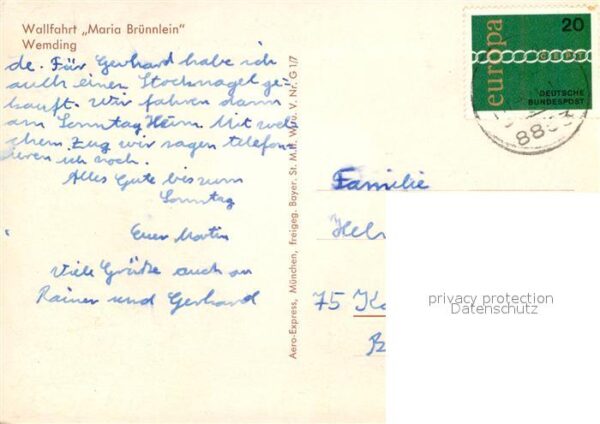 Wallfahrt „Maria Brünnlein"
Wemding
de. Für Gerhard habe ich
auch einen Stocknagel ge-
kauft. Wir fahren dann
am Sonntag Heim. Mit wel-
chem Zug wir sagen telefon
ieren ich noch.
Alles Gute bis zum
Sonntag
Euer Martin
Viele Grüße auch an
Rainer und Gerhard
Aero-Express, München, freigeg. Bayer. St. M.f. W. u. V. Nr. G 1/7
europa
20
CEPT
DEUTSCHE
BUNDESPOST
Familie
75
privacy protection
Datenschutz